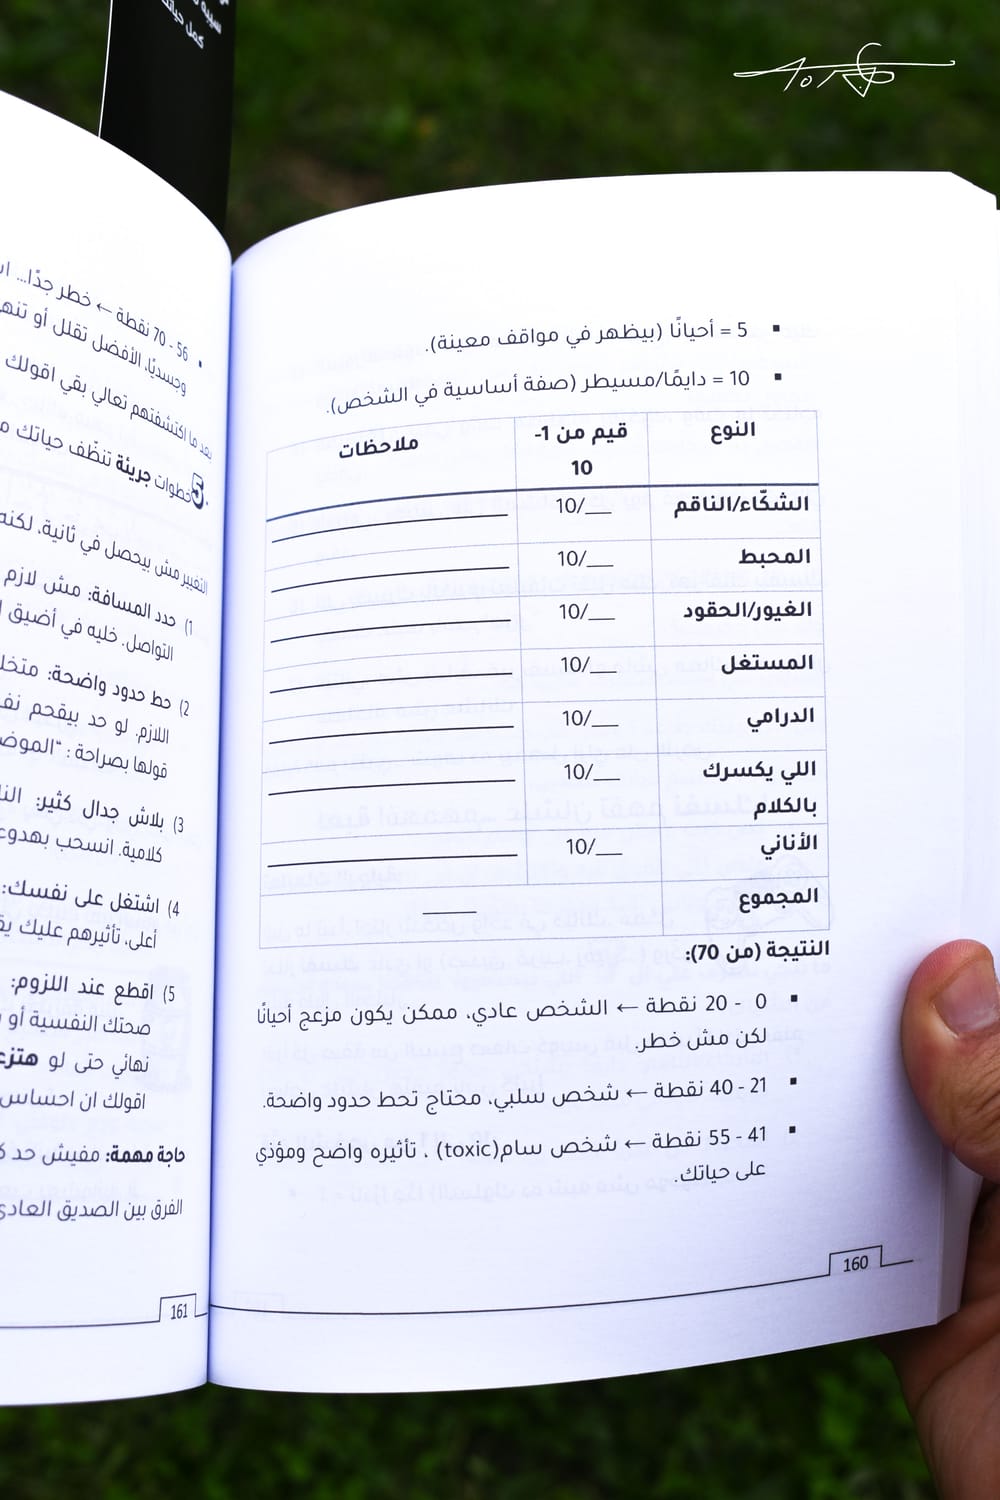 ▪ 5 = أحيانًا (بيظهر في مواقف معينة).
▪ 10 = دايمًا/مسيطر (صفة أساسية في الشخص).
النوع قيم من 1- ملاحظات
10
الشكّاء/الناقم ___/10 ____________
المحبط ___/10 ____________
الغيور/الحقود ___/10 ____________
المستغل ___/10 ____________
الدرامي ___/10 ____________
اللي يكسرك ___/10 ____________
بالكلام
الأناني ___/10 ____________
المجموع ____
النتيجة (من 70):
▪ 0 - 20 نقطة ← الشخص عادي، ممكن يكون مزعج أحيانًا
لكن مش خطر.
▪ 21 - 40 نقطة ← شخص سلبي، محتاج تحط حدود واضحة.
▪ 41 - 55 نقطة ← شخص سام(toxic) ، تأثيره واضح ومؤذي
على حياتك.
160
▪ 56 - 70 نقطة ← خطر جدًا...
وجسديًا، الأفضل تقلل أو
بعد ما اكتشفتهم تعالي بقي اقولك
5 خطوات جريئة تنظّف حياتك
التغيير مش بيحصل في ثانية، لكنه
1) حدد المسافة: مش لازم
التواصل. خليه في أضيق
2) حط حدود واضحة:
اللازم. لو حد بيقحم
قولها بصراحة : "
3) بلاش جدال كثير:
كلامية. انسحب
4) اشتغل على نفسك:
أعلى، تأثيرهم عليك
5) اقطع عند اللزوم:
صحتك النفسية أو
نهائي حتى لو
اقولك ان
حاجة مهمة: مفيش حد
الفرق بين الصديق
161